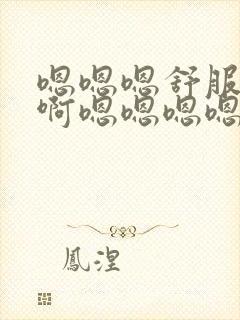 嗯嗯嗯舒服
啊嗯嗯嗯嗯
鳳涅